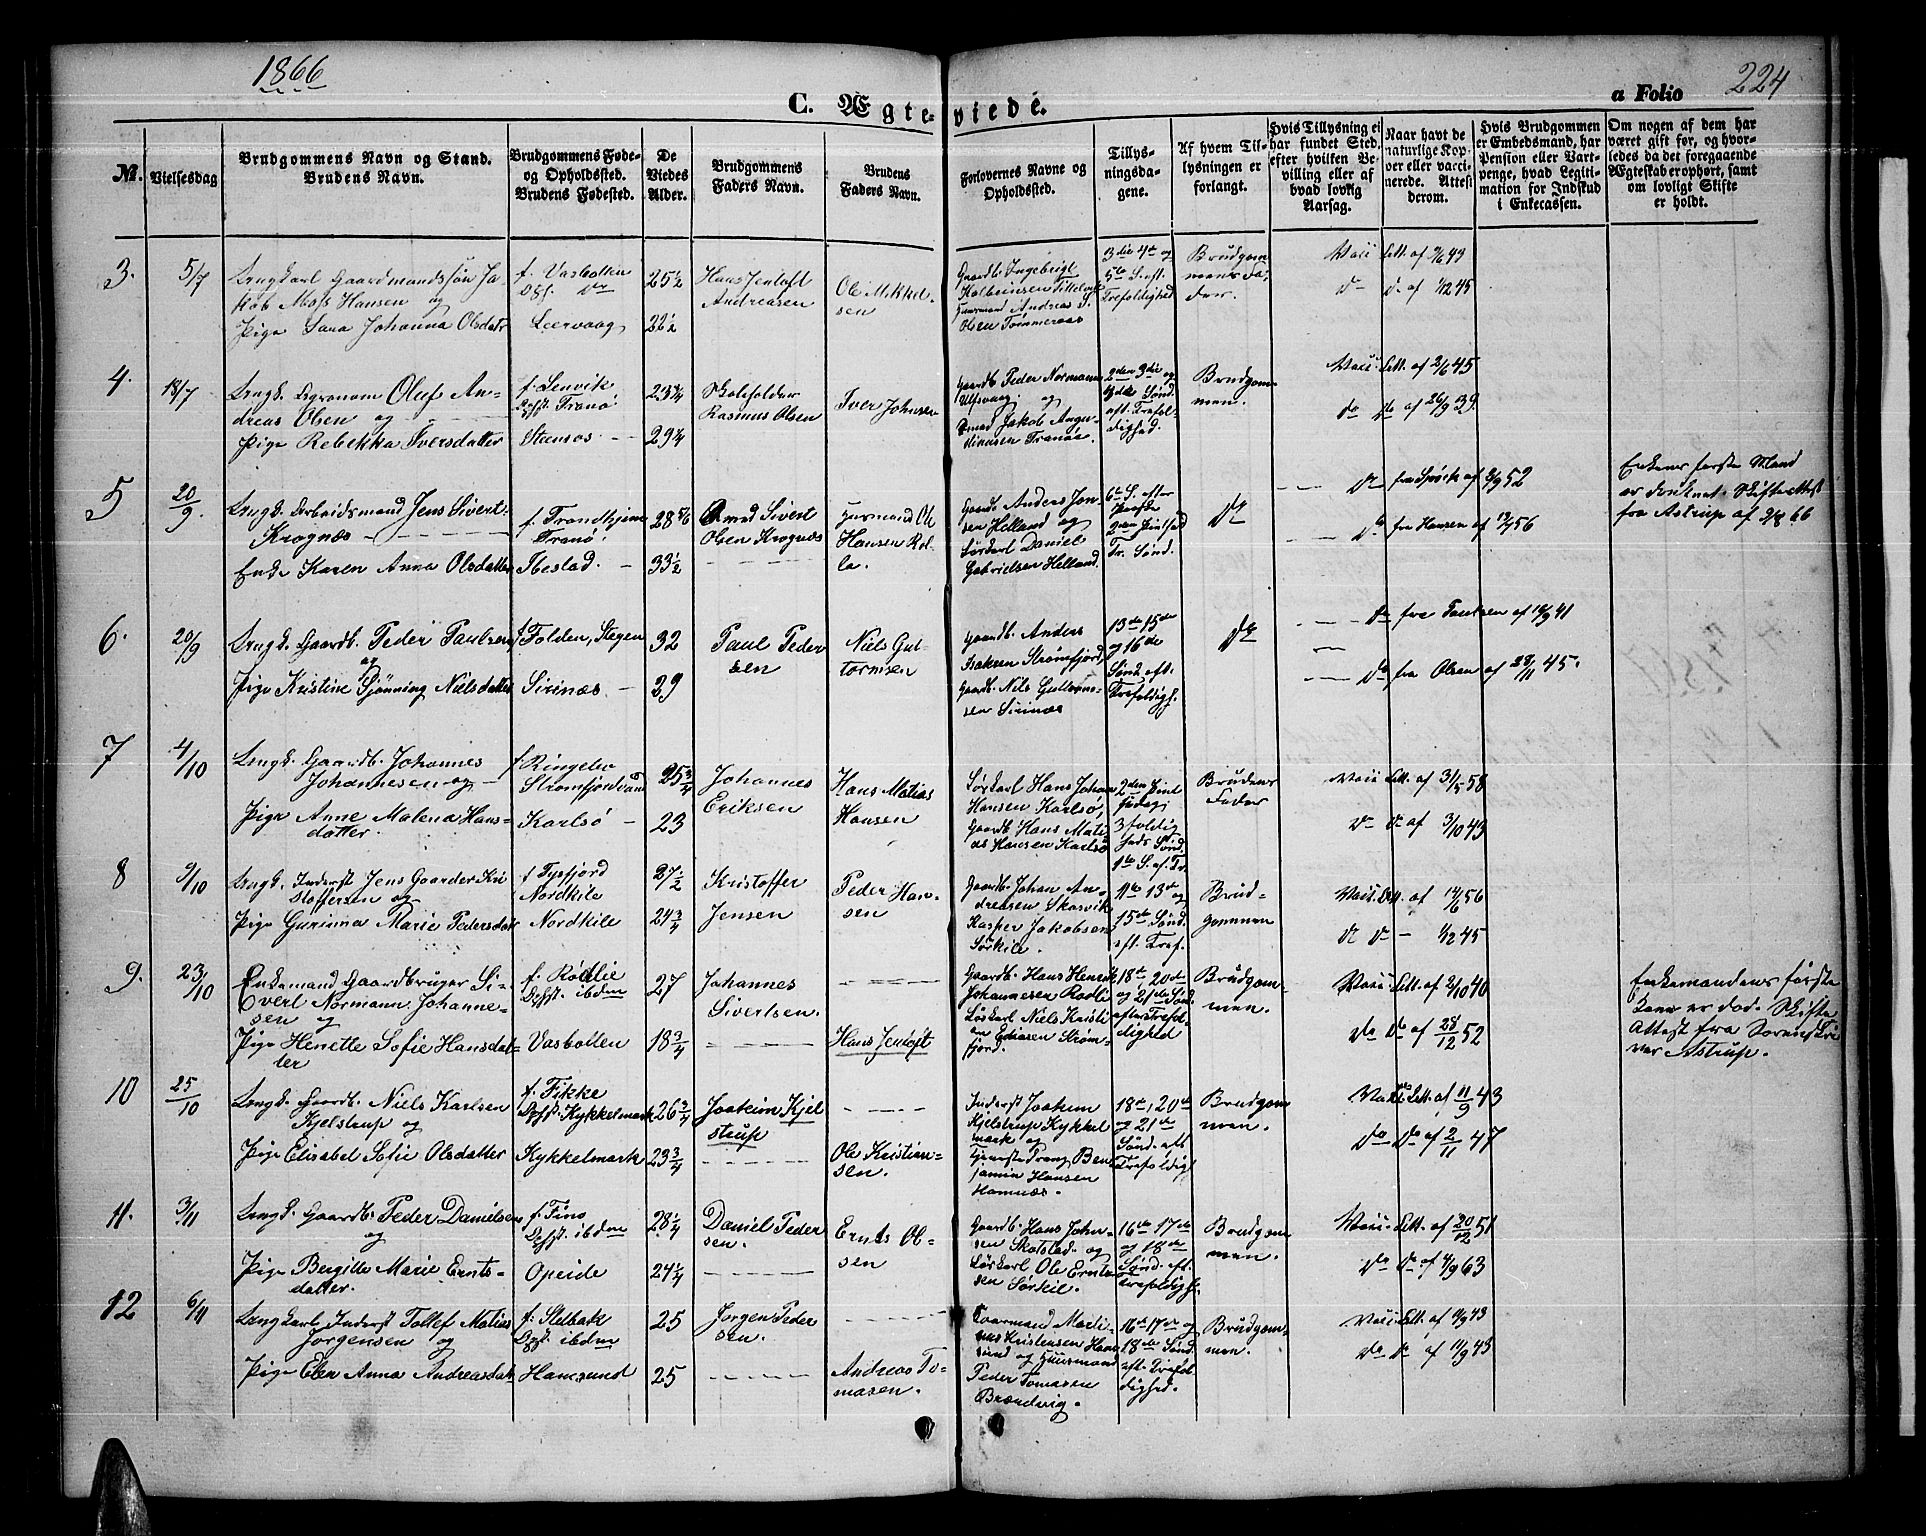 1866
224
C. Ægteviede.
a Folio
No.
Vielsesdag
Brudgommens Navn og Stand.
Brudens Navn.
Brudgommens Føde-
og Opholdssted.
Brudens Fødested.
De
Viedes
Alder.
Brudgommens
Faders Navn.
Brudens
Faders Navn.
Forlovernes Navne og
Opholdssted.
Tillys-
ningsda-
gene.
Af hvem Til-
lysningen er
forlangt.
Hvis Tillysning ei
har fundet Sted,
efter hvilken Be-
villing eller af
hvad lovlig
Aarsag.
Naar havt de
naturlige Kop-
per eller vacci-
nerede. Attest
derom.
Hvis Brudgommen
er Embedsmand, har
Pension eller Vart-
penge, hvad Legiti-
mation for Indskud
i Enkecassen.
Om nogen af dem har
været gift før, og hvor-
ledes da det foregaaende
Ægteskab er ophørt, samt
om lovligt Skifte
er holdt.
3. 5/7
Ungkarl Gaardmandssøn Ja-
kob Moss Hansen og
Pige Sara Johanna Olsdatr
f. Vasbotten
Opf. do
Leervaag
25½
22½
Hans Jentoft
Andreasen
Ole Mikkel-
sen
Gaardb. Ingebrigt
Kolbeinsen
Huusmand Andreas S.
Olsen Tømmeraas
3die 4de og
5te S. eft.
Trefoldighed
Brudgom-
mens Fa-
der.
Vacc. Att. af
do do af 1/12 45
4. 18/7
Ungk. Agronom Oluf An-
dreas Olsen og
Pige Rebekka Iversdatter
f. Lenvik
Opst. Tranø
Steensøs
23¾
29¼
Rasmus Olsen
Iver Johnsen
Gaardb. Peder Normann
Ulfsvaag og
Jakob Angu-
Tranøe.
2den 3die og
4de Sønd.
eft. Trefol-
dighed.
Brudgom-
men.
Vacc. Att. af 2/6 45
do do af 26/9 39.
5 20/9
Ungk. Arbeidsmand Jens Sivert
Krognæs
Enke Karen Anna Olsdatter
f. Trondhjem
Tranø.
Ibestad.
28 5/6
33½
Sivert
Olsen Krognæs
Huusmand Ole
Hansen Rol-
la.
Gaardb. Anders Jon-
sen Helland og
Løskarl Daniel
Gabrielsen Helland.
6te S. efter
Paaske
2den Pintsed
Tr. Sønd.
do
do fra af 3/9 52
do fra Hansen af 12/7 56
Enkens første Mand
er druknet. Skifteattest
fra Astrup af 66
6. 20/9
Ungk. Gaardb. Peder Paulsen
og
Pige Kristine Sjønning Nielsdatter
f. Folden, Stegen
Sirinæs.
32
29
Paul Peder
sen
Niels Gut-
tormsen
Gaardb. Anders
Isaksen Strømfjord,
Gaardb. Nils Guttorm-
sen Sirinæs
13de 15de
og 16de
Sønd. eft.
Trefoldigh.
do
do fra Paulsen af 41
do fra Olsen af 28/11 45.
7 4/10
Ungk. Gaardb. Johannes
Johannesen og
Pige Anne Malena Hans-
datter.
f. Ringebu
Strømfjordvand
Karlsø
25¾
23
Johannes
Eriksen
Hans Matias
Hansen
Løskarl Hans Johan
Hansen Karlsø,
Gaardb. Hans Mati-
as Hansen Karlsø
2den Pind
sedag,
3foldig
heds Sønd.
1ste S. af. Tr.
Brudens
Fader
Vacc. Att. af 31/5 58
do do af 3/10 43
8 9/10
Ungk. Inderst Jens Gaarder Kri
stoffersen og
Pige Gurinna Marie Pedersdatr
f. Tysfjord
Nordkile
Nordkile
27½
24¾
Kristoffer
Jensen
Peder Han-
sen
Gaardb. Johan An-
dreasen Skarvik
Kasper Jakobsen
Sørkile.
11te 13de og
15de Sønd.
eft. Tref.
Brud-
gommen
Vacc. Att. af 14/6 56
do do – 1/12 45
9. 23/10
Enkemand Gaardbruger Si-
vert Normann Johanne-
sen og
Pige Henette Sofie Hansdat-
ter
f. Rødlie
Opst. ibdm
Vasbotten
27
18¾
Johannes
Sivertsen.
Hans Jentoft
Gaardb. Hans Henrik
Johannesen Rødli
Løskarl Niels Kristi
an Strøm-
fjord.
18de, 20de
og 21de Sønd.
efter Trefol-
dighed
Brudgom-
men.
Vacc. Att. af 2/10 40
do do af 28/12 52
Enkemandens første
Kone er død. Skifte
Attest fra Sorenskri
ver Astrup.
10 25/10
Ungk. Gaardb. Niels Karlsen
Kjelstrup og
Pige Elisabet Sofie Olsdatter
f. Fikke
Opst. Kykkelmark
Kykkelmark
26¾
23¾
Joakim Kjel
strup
Ole Kristian-
sen.
Inderst Joakim
Kjelstrup Kykkel
mark og
Tjenestedreng Ben-
jamin Hansen
Hamnæs.
18de, 20de
og 21de
Sønd. eft.
Trefoldigh.
Brudgom
men.
Vacc. Att. af 11/9 43
do do af 2/11 47
11. 3/11
Ungk. Gaardb. Peder Danielsen
og
Pige Bergitte Marie Ernts-
datter.
f. Finø
Opst. ibdm
Opeide
28¼
24¼
Daniel Peder
sen.
Ernts Ol-
sen
Gaardb. Hans John-
sen Skotstad. og
Løskarl Ole Ernt-
sen Sørkil.
16de 17de
og 18de
Sønd. eft.
Trefoldigh.
Brudgom
men.
Vacc. Att. af 20/12 51
do do af 4/9 63
12 6/11
Ungkarl Inderst Tollef Matias
Jørgensen og
Pige Elen Anna Andreasdatr
f. Stelbak
Opst. ibdm
Hamsund
25
25
Jørgen Peder
sen.
Andreas To-
masen.
Gaardmand Marti-
nus Kristensen Ham-
sund og Huusmand
Peder Tomasen
Brændvig.
16de 17de og
18de Sønd.
eft. Trefol-
dighed.
Brudgom-
men.
Vacc. Att. af 11/9 43
do do af 11/9 43